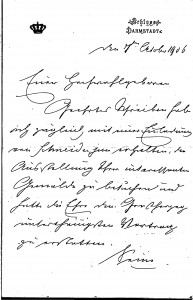 Schloss
DARMSTADT
den 7ten Octobr 1906
Euer Hochwohlgeboren
Geehrtes Schreiben hab
ich zugleich mit einer Einladung
von erhalten, die
Ausstellung Ihrer interessanten
Gemälde zu besuchen und
hatte die Ehre dem Großherzog
unterthänigsten Vortrag
zu erstatten.